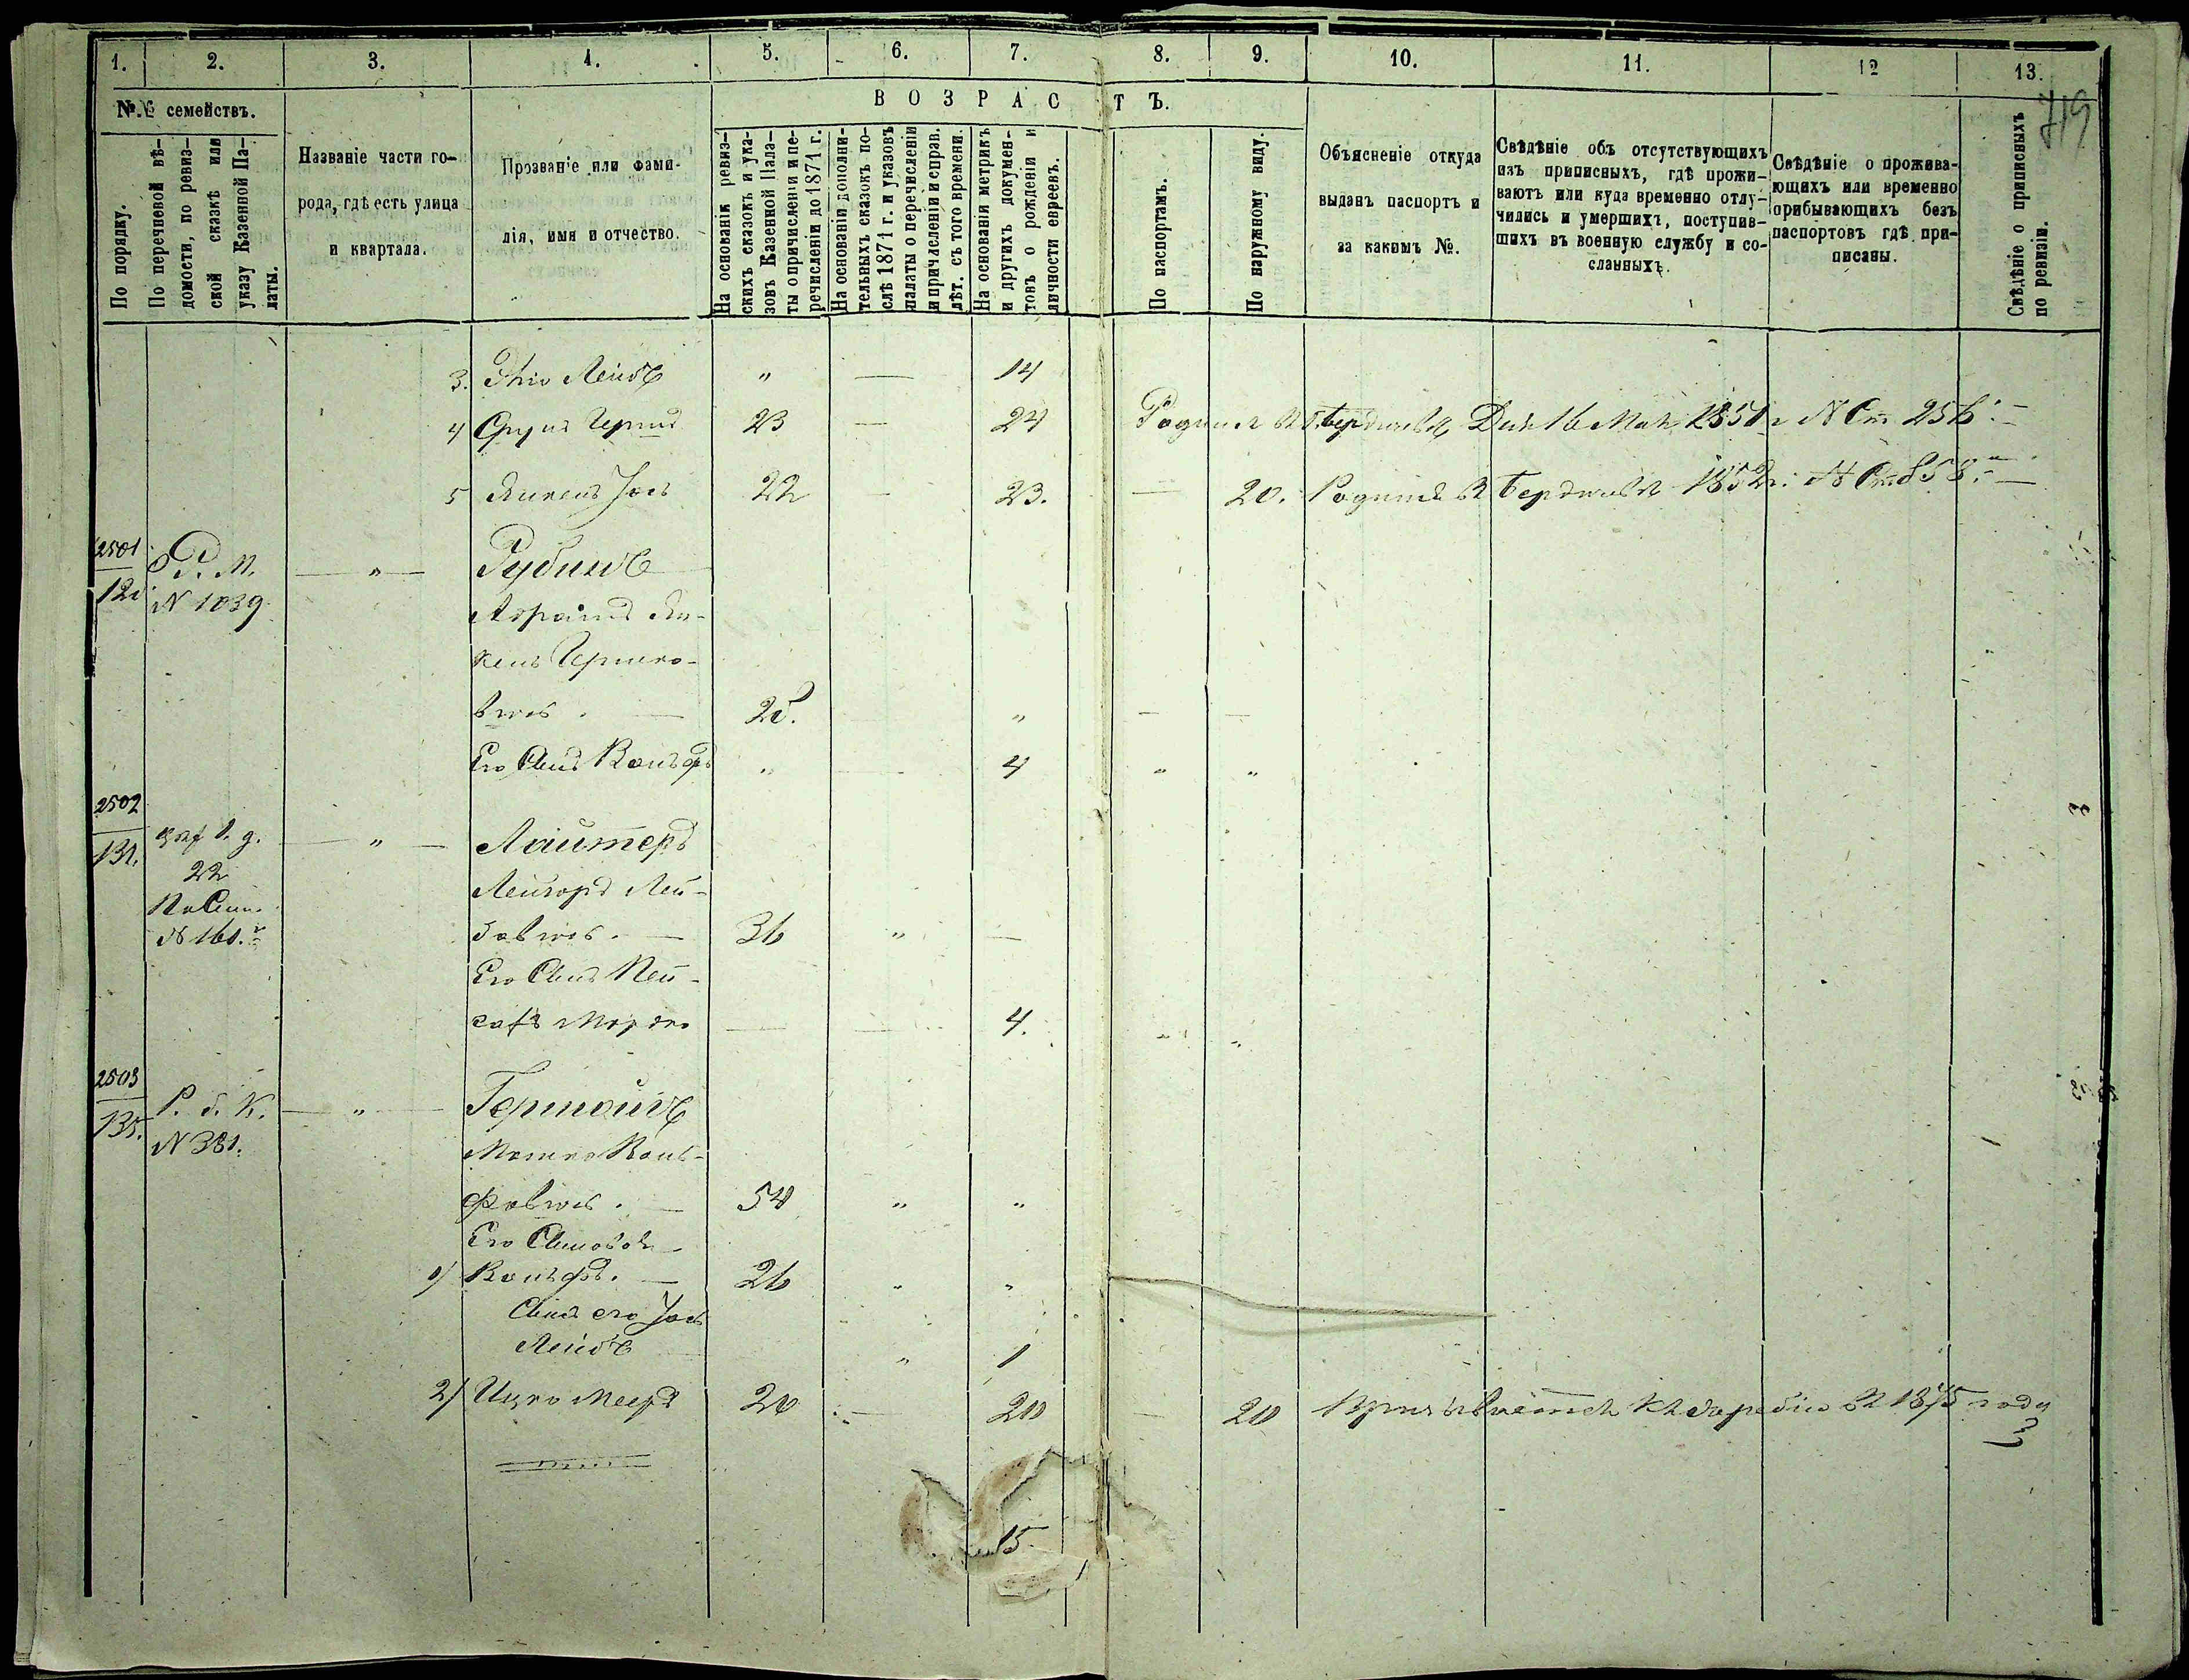 1. 2. 3. 4. 5. 6. 7. 8. 9. 10. 11. 12 13.
719
№.№ семействъ.
По порядку.
По перечневой вѣ-
домости, по ревиз-
ской сказкѣ или
указу Казенной Па-
латы.
Названіе части го-
рода, гдѣ есть улица
и квартала.
Прозваніе или фами-
лія, имя и отчество.
ВОЗРАСТЪ.
На основаніи ревиз-
скихъ сказокъ и ука-
зовъ Казенной Пала-
ты о причисленіи и пе-
речисленіи до 1871 г.
На основаніи дополни-
тельныхъ сказокъ по-
слѣ 1871 г. и указовъ
палаты о перечисленіи
и причисленіи и справ.
лѣт. съ того времени.
На основаніи метрикъ
и другихъ докумен-
товъ о рожденіи и
личности евреевъ.
По паспортамъ.
По наружному виду.
Объясненіе откуда
выданъ паспортъ и
за какимъ №.
Свѣдѣніе объ отсутствующихъ
изъ приписныхъ, гдѣ прожи-
ваютъ или куда временно отлу-
чились и умершихъ, поступив-
шихъ въ военную службу и со-
сланныхъ.
Свѣдѣніе о прожива-
ющихъ или временно
прибывающихъ безъ
паспортовъ гдѣ при-
писаны.
Свѣдѣніе о приписныхъ
по ревизіи.
3. Лейбъ " — 14
4 Сруль Герш 23 — 24 Родился въ г. Бердичевѣ Дня 16 Мая 1851 г N Ст 256.
5 Янкель Јось 22 — 23. — 20. Родился въ Бердичевѣ 1852 г. N Ст 858.
2501
Р. М. — " — Рубинъ
N 1039 Абрамъ Ян-
кель Гершко-
вичъ. —
Его Сынъ Вольфъ " — 4 " "
2502
— " — Лайтеръ
132.
22
Лейзоръ Лей-
N 161. бовичъ. — 36 " —
Его Сынъ Пей-
сахъ Мордко — — 4.
2503
Р. б. К. — " — Гершойгъ
135.
N 381. Мошко Воль-
фовичъ. — 54 " "
Его Сыновья
1) Вольфъ. — 26 " "
Сынъ его Јось
Лейбъ " 1
2) Ицко Мееръ 20 — 20 — 20 Призывается къ жеребію въ 1875 году
15